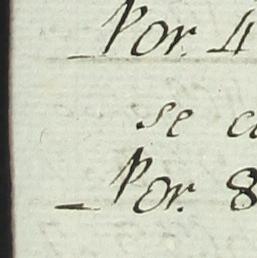 Por. 4
se c
Por. 8